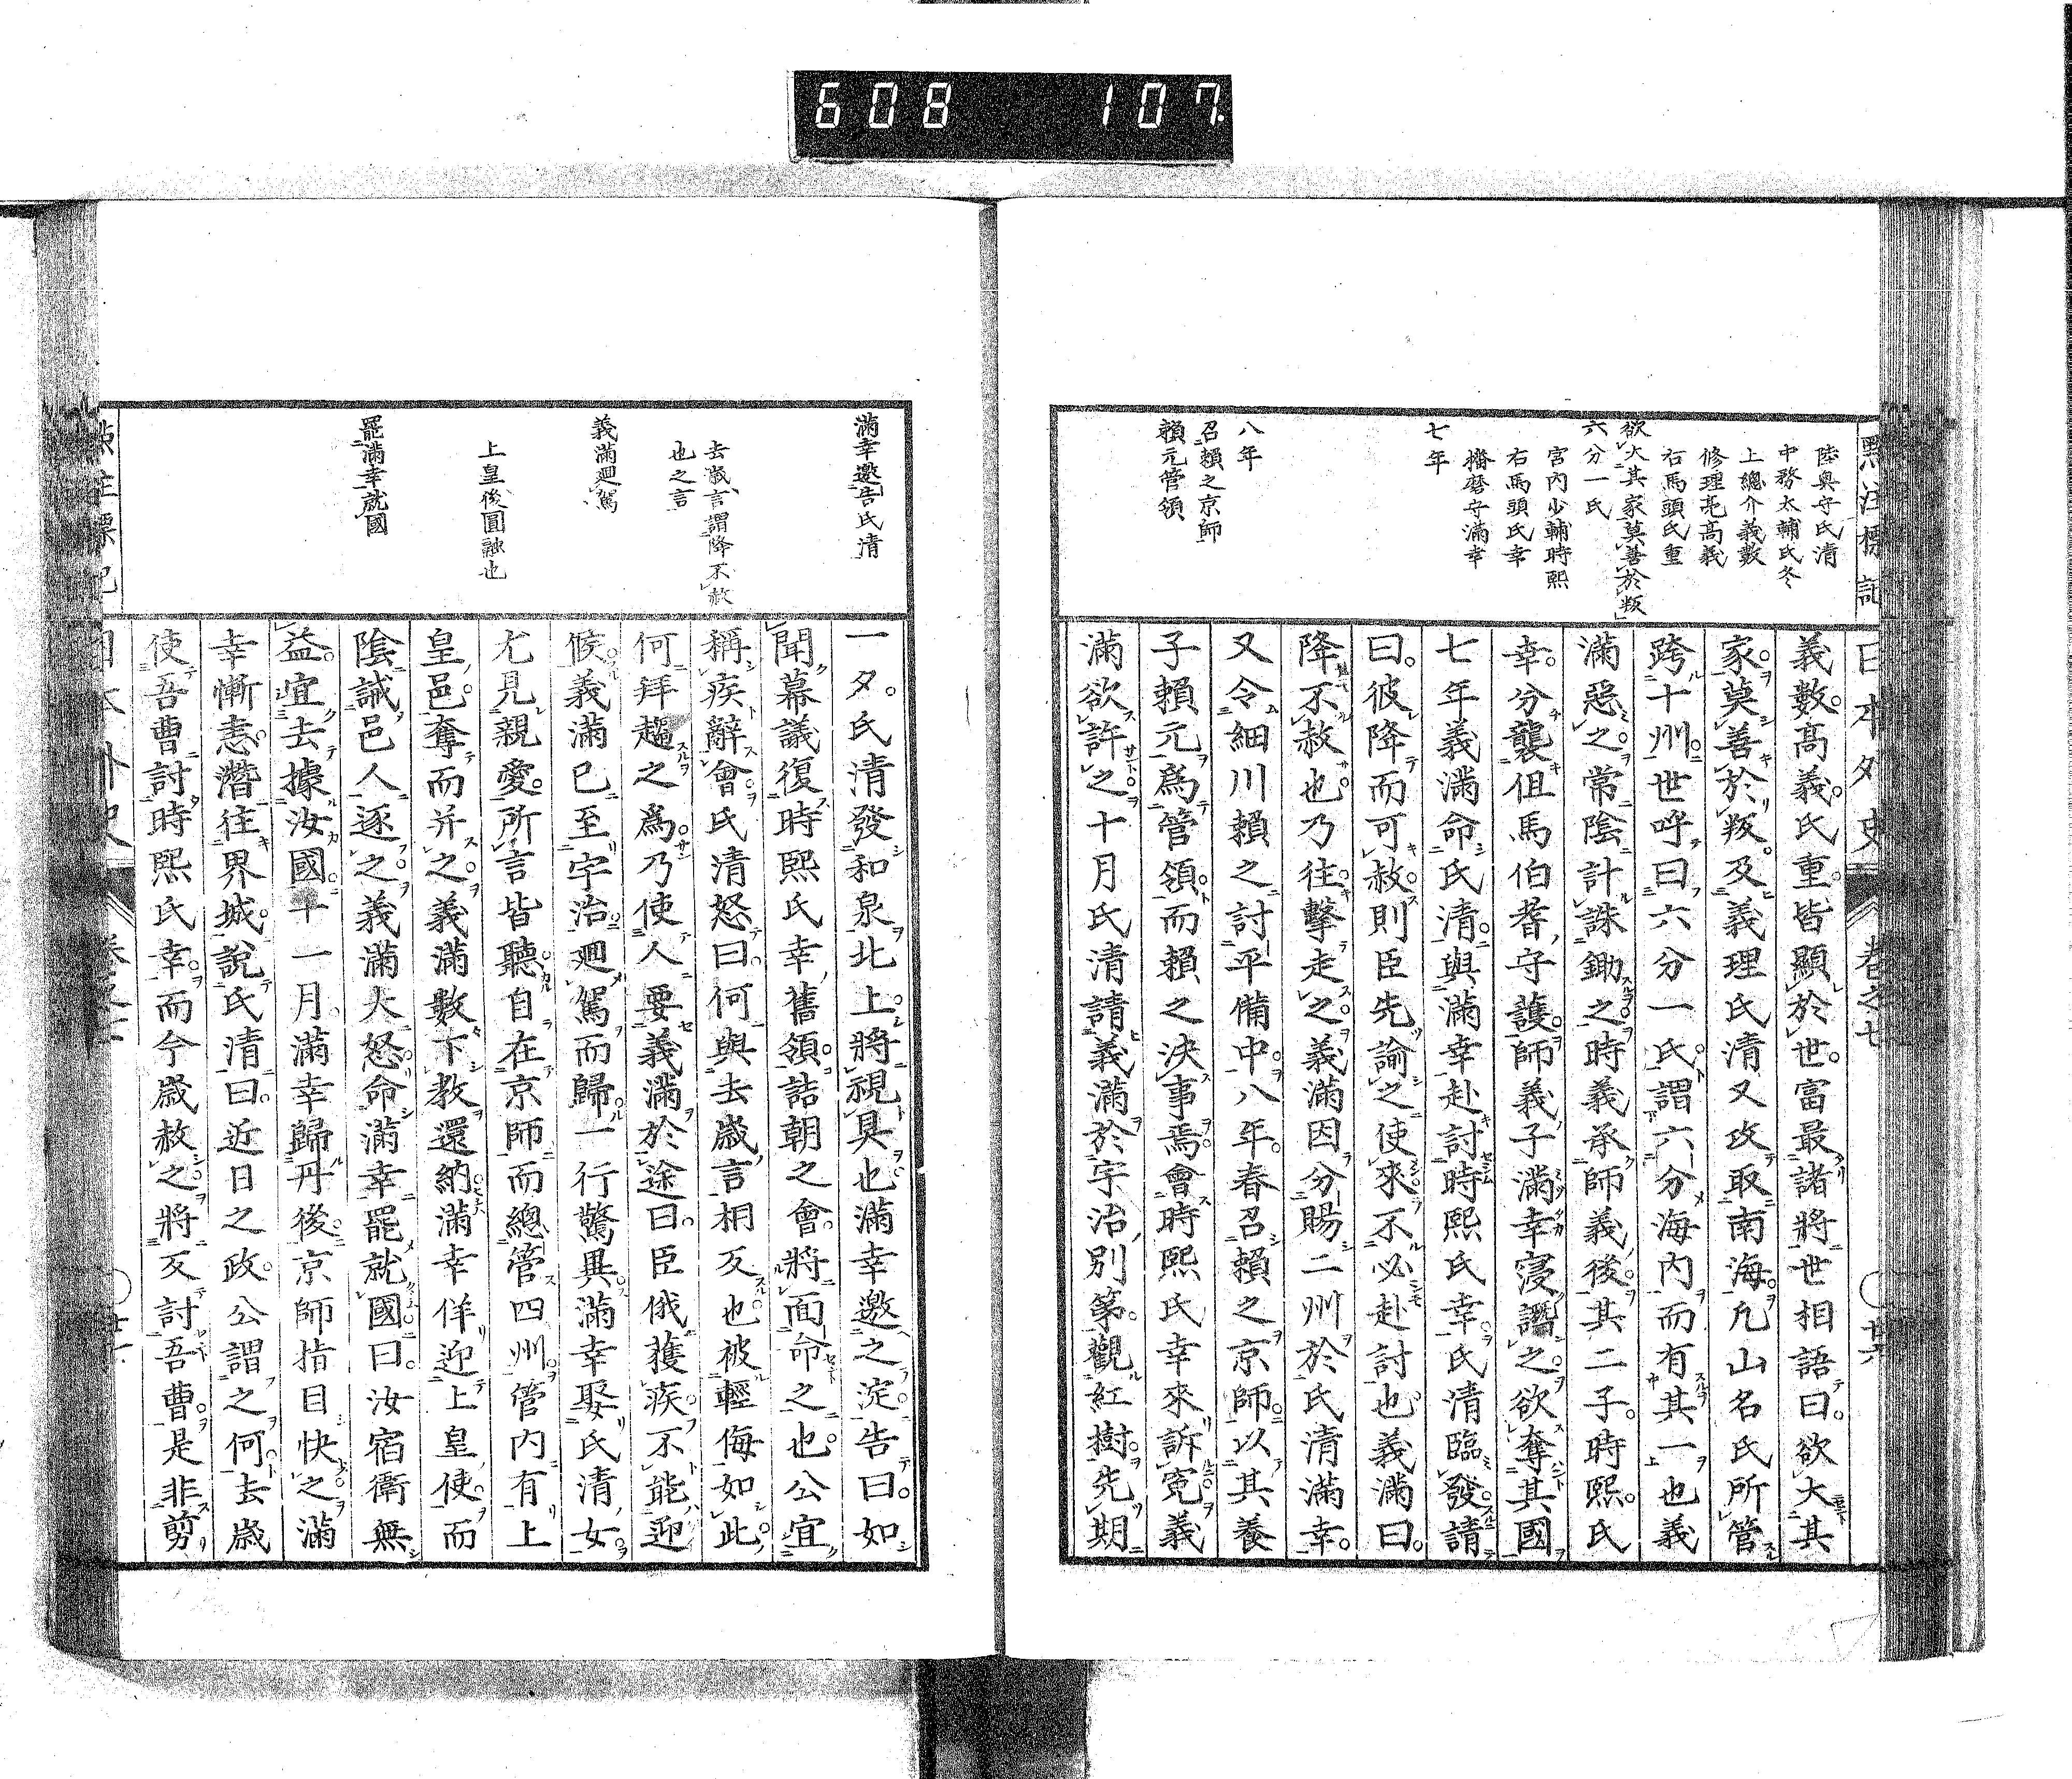 608 107
點注標記
陸奥守氏清
中務太輔氏冬
上總介義數
修理亮高義
右馬頭氏重
欲大其家莫善於叛
六分一氏
宮内少輔時熙
右馬頭氏幸
播磨守滿幸
七年
八年
召賴之京師
賴元管領
日本外史 卷之七
義數高義氏重皆顯於世富最諸將世相語曰欲大其
家莫善於叛及義理氏清又攻取南海凢山名氏所管
跨十州世呼曰六分一氏謂六分海内而有其一也義
滿惡之常陰計誅鋤之時義承師義後其二子時熙氏
幸分襲伹馬伯耆守護師義子滿幸寖譖之欲奪其國
七年義滿命氏清與滿幸赴討時熙氏幸氏清臨發請
曰彼降而可赦則臣先諭之使來不必赴討也義滿曰
降不赦也乃往擊走之義滿因分賜二州於氏清滿幸
又令細川賴之討平備中八年春召賴之京師以其養
子賴元爲管領而賴之決事焉會時熙氏幸來訴冤義
滿欲許之十月氏清請義滿於宇治別第觀紅樹先期
滿幸邀告氏清
去歲言謂降不赦
也之言
義滿迴駕
上皇後圓融也
罷滿幸就國
一夕氏清發和泉北上將視具也滿幸邀之淀告曰如
聞幕議復時熙氏幸舊領詰朝之會將面命之也公宜
稱疾辭會氏清怒曰何與去歲言相反也被輕侮如此
何拜趨之爲乃使人要義滿於途曰臣俄獲疾不能迎
候義滿已至宇治迴駕而歸一行驚異滿幸娶氏清女
尤見親愛所言皆聽自在京師而總管四州管内有上
皇邑奪而并之義滿數下教還納滿幸佯迎上皇使而
陰誡邑人逐之義滿大怒命滿幸罷就國曰汝宿衛無
益宜去據汝國十一月滿幸歸丹後京師指目快之滿
幸慚恚潛往界城說氏清曰近日之政公謂之何去歲
使吾曹討時熙氏幸而今歲赦之將反討吾曹是非剪